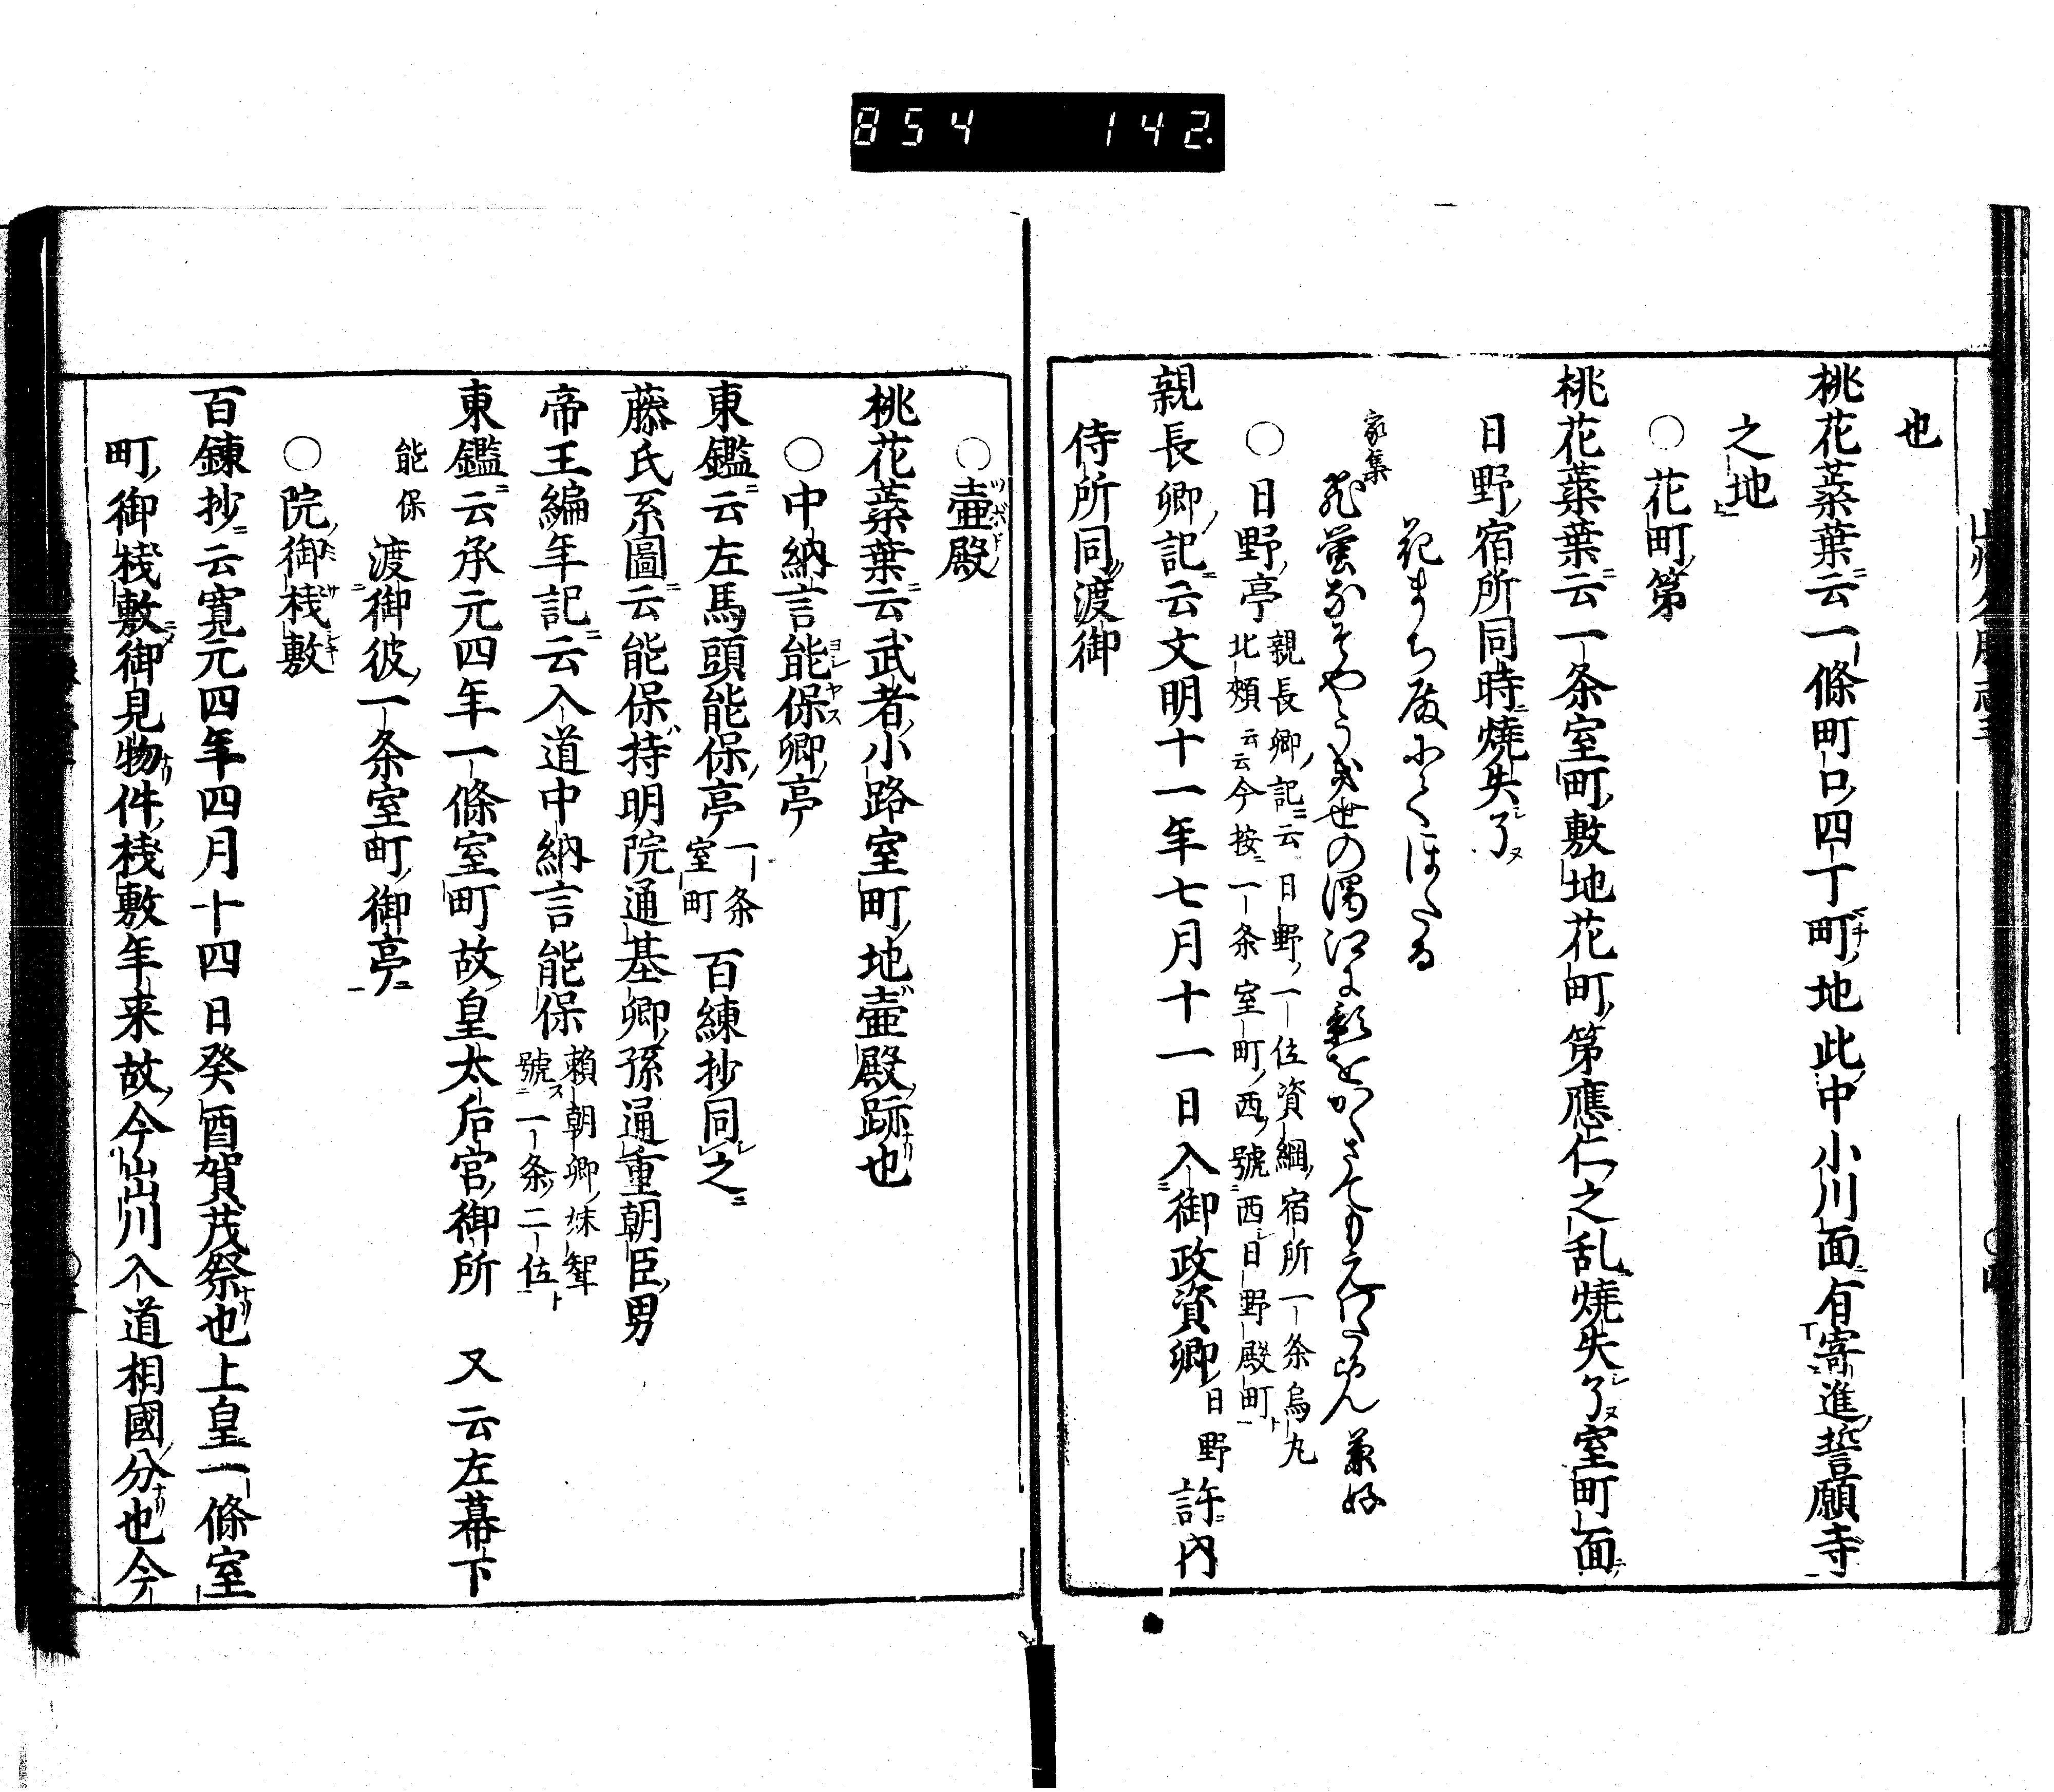 854 142.
也
桃花蘂葉ニ云一條町口四丁町地此中小川面ニ有寄進誓願寺
之地
○花町第
桃花蘂葉ニ云一条室町敷地花町第應仁之乱燒失了室町面
日野宿所同時ニ燒失了
花まち
家集
世の
兼好
○日野亭
親長卿記ニ云日野一位資綱宿所一条烏丸
北頬云云今按ニ一条室町西號西日野殿町
親長卿記ニ云文明十一年七月十一日入御政資卿日野許内
侍所同渡御
○壷殿
桃花蘂葉ニ云武者小路室町地壷殿跡也
○中納言能保卿亭
東鑑ニ云左馬頭能保亭一条室町 百練抄同之
藤氏系圖ニ云能保持明院通基卿孫通重朝臣男
帝王編年記ニ云入道中納言能保
頼朝卿妹聟
號一条二位
東鑑ニ云承元四年一條室町故皇太后宮御所 又云左幕下
能保 渡御彼一条室町御亭
○院御棧敷
百錬抄ニ云寛元四年四月十四日癸酉賀茂祭也上皇一條室
町御棧敷御見物件棧敷年来故今出川入道相國分也今